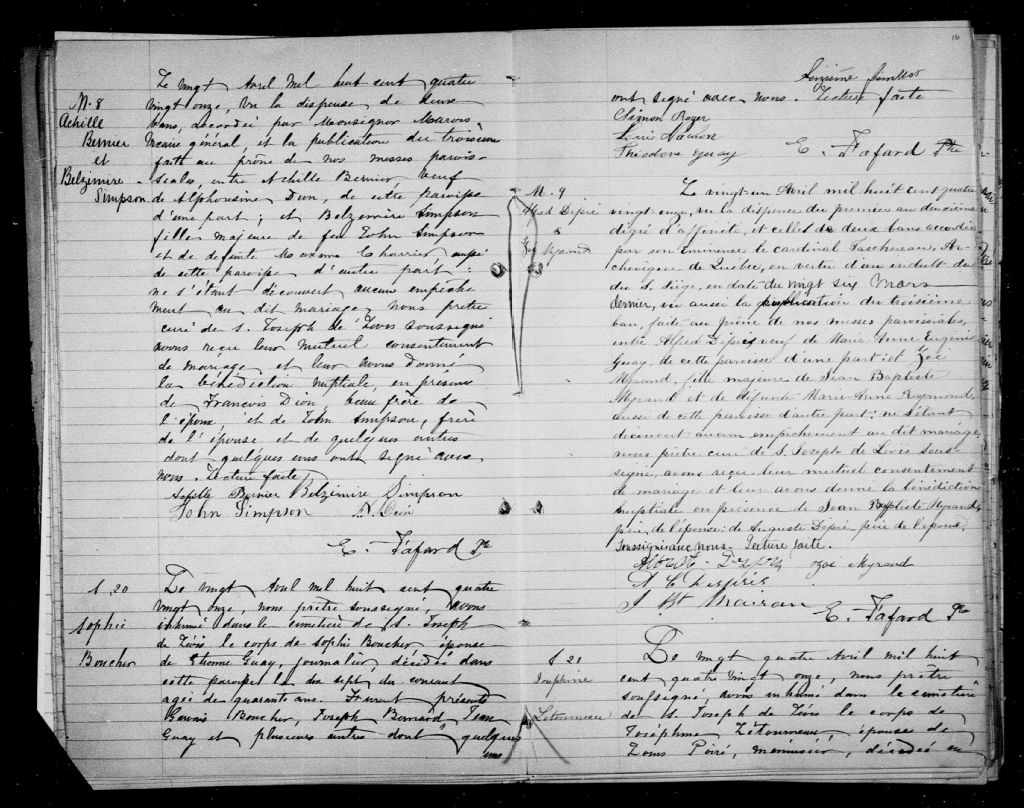 M. 8
Achille
Bernier
et
Belzemire
Simpson
Le vingt Avril mil huit cent quatre
vingt onze, Vu la dispense de deux
bans, accordée par Monseigneur Marois,
Vicaire général, et la publication du troisième
faite au prône de nos messes parois-
siales, entre Achille Bernier, veuf
de Alphonsine Dion, de cette paroisse
d'une part ; et Belzemire Simpson
fille majeure de feu John Simpson
et de defunte Charrier aussi
de cette paroisse d'autre part :
ne s'étant découvert aucun empêche
ment au dit mariage, nous prêtre
curé de S. Joseph de Lévis soussigné
avons reçu leur mutuel consentement
de mariage et leur avons donné
la bénédiction nuptiale, en présence
de François Dion, beau frère de
l'époux, et de John Simpson, frère
de l'épouse et de quelques autres
dont quelques uns ont signé avec
nous. Lecture faite
Achille Bernier Belzemire Simpson
John Simpson Dion
E. Fafard Ptr
S. 20
Sophie
Boucher
Le vingt Avril mil huit cent quatre
vingt onze, nous prêtre soussigné, avons
inhumé dans le cimetière de S. Joseph
de Lévis le corps de Sophie Boucher, épouse
de Etienne Guay, journalier, décédée dans
cette paroisse le dix sept du courant
agée de quarante ans. Furent présents
Boucher, Joseph Bernard Jean
Guay et plusieurs autres dont quelques
uns
16
feuillet
ont signé avec nous. Lecture faite
Simon Royer
Théodore Guay
E. Fafard Ptre
M. 9
Alfred Depré
&
Myrand
Le vingt-un Avril mil huit cent quatre
vingt onze, vu la dispense du premier au deuxième
dégré d'affinité, et celle de deux bans accordée
par son Eminence le cardinal Taschereau, Ar-
chevêque de Québec, en vertu d'un indult du
du S. Siège, en date du vingt six Mars
dernier, vu aussi la publication du troisième
ban, faite au prône de nos messes paroissiales,
entre Alfred Depré, veuf de Marie-Anne-Eugénie
Guay, de cette paroisse d'une part et Zoé
Myrand, fille majeure de Jean Baptiste
Myrand et de défunte Marie-Anne Raymond,
aussi de cette paroisse d'autre part : ne s'étant
découvert aucun empêchement au dit mariage,
nous prêtre curé de S. Joseph de Lévis sous-
signé, avons reçu leur mutuel consentement
de mariage et leur avons donné la bénédiction
nuptiale en présence de Jean Baptiste Myrand,
père, de l'épouse, de Auguste Depré, père de l'époux,
soussignés avec nous. Lecture faite.
Myrand
E. Fafard Ptre
S. 21
Josephine
Letourneau
Le vingt quatre Avril mil huit
cent quatre vingt onze, nous prêtre
soussigné avons inhumé dans le cimetière
de S. Joseph de Lévis le corps de
Joséphine Létourneau, épouse de
Louis Poiré, menuisier, décédée en